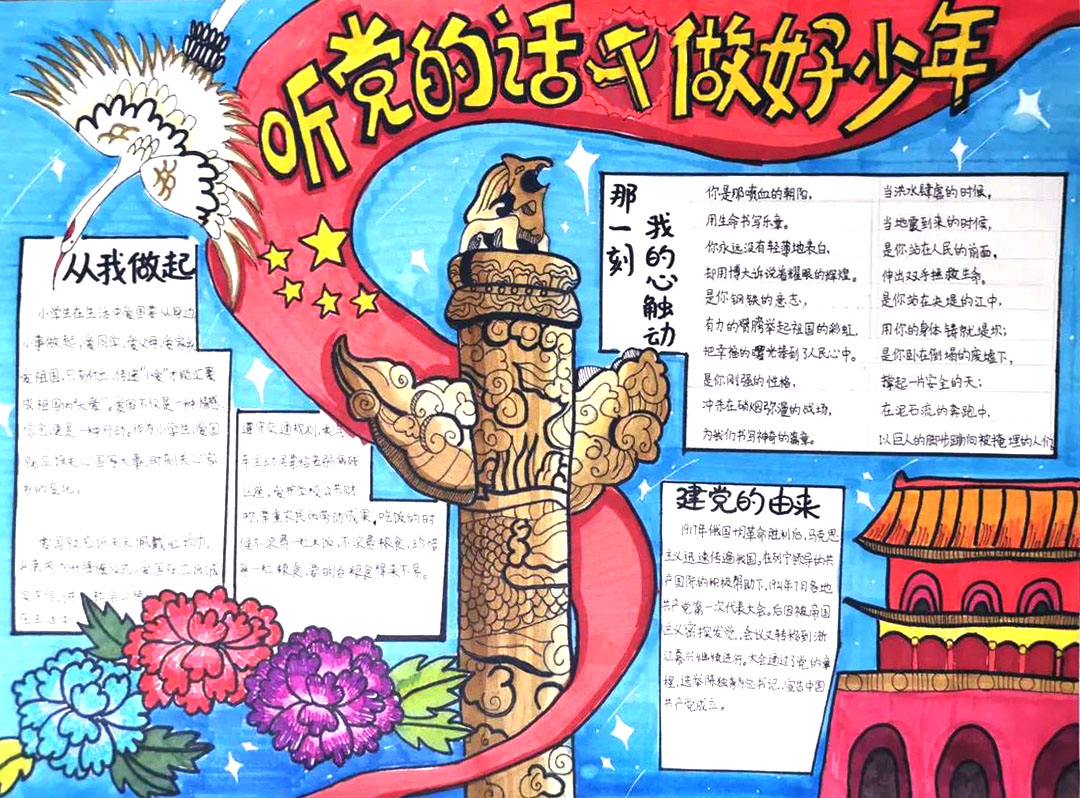 听党的话 做好少年
从我做起
小学生在生活中爱国要从身边
小事做起,爱同学、爱父母、爱家乡、
爱祖国,只有付出、传递"小爱"才能汇聚
成祖国的"大爱"。爱国不仅是一种情感、
信念,更是一种行动。作为小学生,爱国
就应该关心国家大事,时刻关心家
乡的变化。
遵守交通规则,乘
车主动
让座,爱护学校公共财
物,尊重农民的劳动成果,吃饭的时
候不浪费一粒大米,不浪费粮食,珍惜
每一粒粮食,要明白粮食得来不易。
那一刻
我的心触动
你是那喷血的朝阳,
用生命书写乐章。
你永远没有轻薄地表白,
却用博大诉说着耀眼的辉煌。
是你钢铁的意志,
有力的臂膀举起祖国的彩虹,
把幸福的曙光接到了人民心中。
是你刚强的性格,
冲杀在硝烟弥漫的战场,
为我们书写神奇的篇章。
当洪水肆虐的时候,
当地震到来的时候,
是你站在人民的前面,
伸出双手拯救生命。
是你站在决堤的江中,
用你的身体铸就堤坝;
是你卧在倒塌的废墟下,
撑起一片安全的天;
在泥石流的奔跑中,
以巨人的脚步踏向被掩埋的人们
建党的由来
1917年俄国十月革命胜利后,马克思
主义迅速传遍我国。在列宁领导的共
产国际的积极帮助下,1921年7月各地
共产党第一次代表大会。后因被帝国
主义密探发觉,会议又转移到浙
江嘉兴继续进行。大会通过了党的章
程,选举陈独秀为总书记,宣告中国
共产党成立。